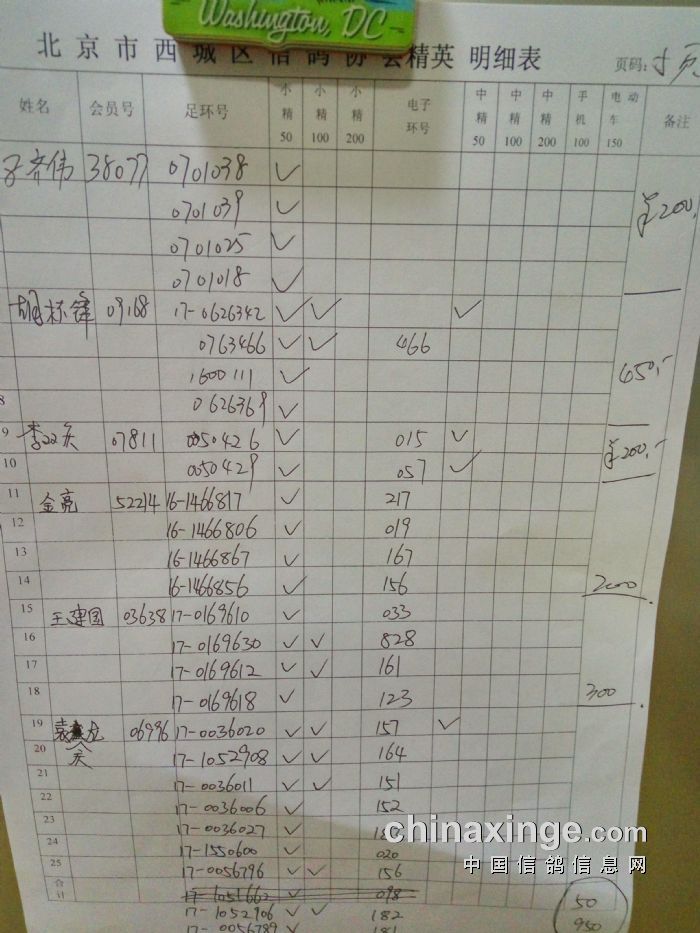 Washington, DC
北京市西城区信鸽协会精英 明细表
页码:
姓名 会员号 足环号 小精50 小精100 小精200 电子环号 中精50 中精100 中精200 手机100 电动车150 备注
齐伟 38077 0701038 ✓
0701039 ✓ 200
0701025 ✓
0701018 ✓
胡 锋 09168 17-0626342 ✓ ✓ ✓
0763466 ✓ ✓ 466
1600111 ✓ 450,-
8 0626369 ✓
9 李双庆 07811 0050426 ✓ 015 ✓
10 0050429 ✓ 057 ✓ 200,-
11 金亮 52214 16-1466817 ✓ 217
12 16-1466806 ✓ 019
13 16-1466867 ✓ 167
14 16-1466856 ✓ 156 200
15 王建国 03638 17-0169610 ✓ 033
16 17-0169630 ✓ ✓ 828
17 17-0169612 ✓ ✓ 161
18 17-0169618 ✓ 123 300
19 袁 龙 06996 17-0036020 ✓ ✓ 157 ✓
20 17-1052908 ✓ ✓ 164
21 17-0036011 ✓ ✓ 151
22 17-0036006 ✓ 152
23 17-0036027 ✓
24 17-1550600 ✓ 020
25 17-0056796 ✓ ✓ 156
合计 17-1051662 ✓ 098 50
17-1052906 ✓ ✓ 182 950
17-0056789 ✓ ✓ 181
chinaxinge.com
中国信鸽信息网